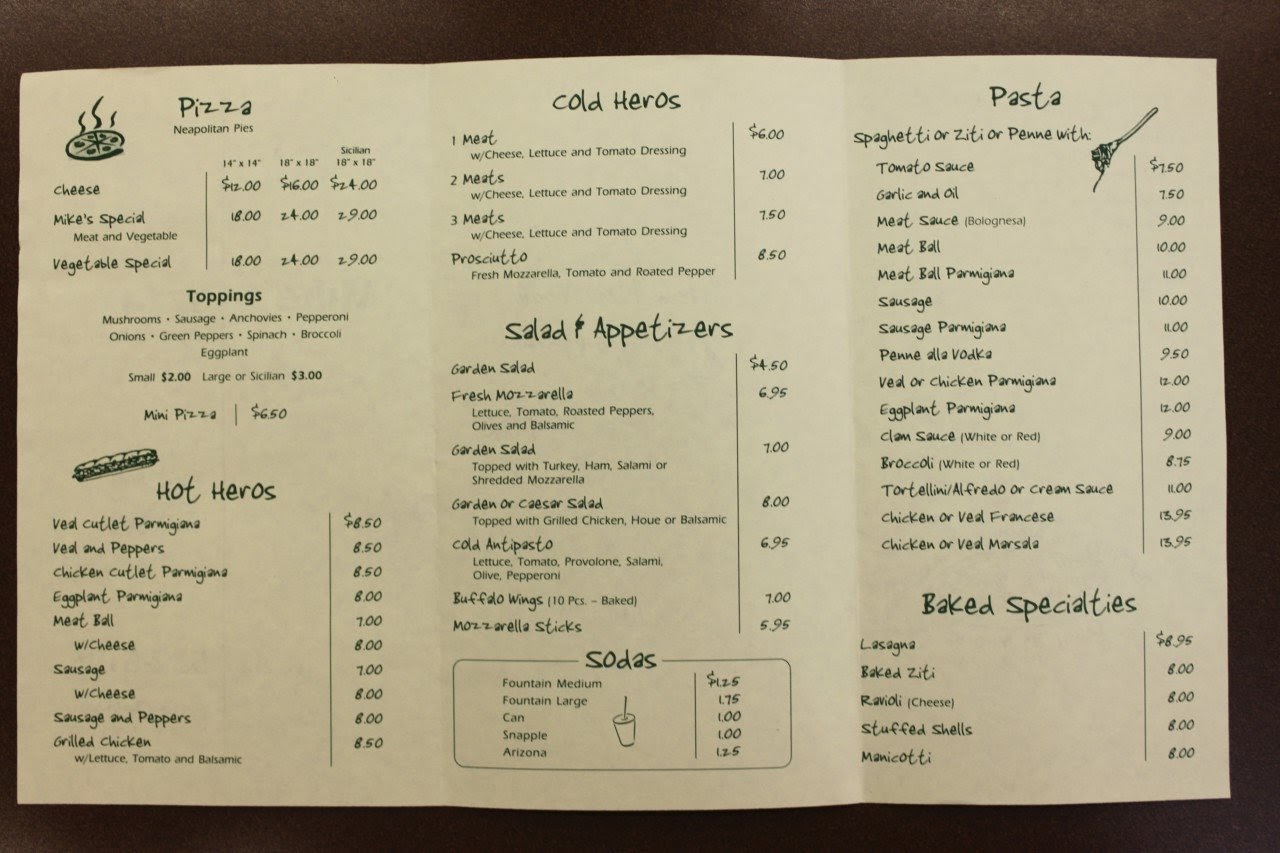 Pizza
Neapolitan Pies
Sicilian
14" x 14" 18" x 18" 18" x 18"
Cheese $12.00 $16.00 $24.00
Mike's Special 18.00 24.00 29.00
Meat and Vegetable
Vegetable Special 18.00 24.00 29.00
Toppings
Mushrooms • Sausage • Anchovies • Pepperoni
Onions • Green Peppers • Spinach • Broccoli
Eggplant
Small $2.00 Large or Sicilian $3.00
Mini Pizza $6.50
Hot Heros
Veal Cutlet Parmigiana $8.50
Veal and Peppers 8.50
Chicken Cutlet Parmigiana 8.50
Eggplant Parmigiana 8.00
Meat Ball 7.00
w/Cheese 8.00
Sausage 7.00
w/Cheese 8.00
Sausage and Peppers 8.00
Grilled Chicken 8.50
w/Lettuce, Tomato and Balsamic
Cold Heros
1 Meat $6.00
w/Cheese, Lettuce and Tomato Dressing
2 Meats 7.00
w/Cheese, Lettuce and Tomato Dressing
3 Meats 7.50
w/Cheese, Lettuce and Tomato Dressing
Prosciutto 8.50
Fresh Mozzarella, Tomato and Roated Pepper
Salad & Appetizers
Garden Salad $4.50
Fresh Mozzarella 6.95
Lettuce, Tomato, Roasted Peppers,
Olives and Balsamic
Garden Salad 7.00
Topped with Turkey, Ham, Salami or
Shredded Mozzarella
Garden or Caesar Salad 8.00
Topped with Grilled Chicken, Houe or Balsamic
Cold Antipasto 6.95
Lettuce, Tomato, Provolone, Salami,
Olive, Pepperoni
Buffalo Wings (10 Pcs. – Baked) 7.00
Mozzarella Sticks 5.95
Sodas
Fountain Medium $1.25
Fountain Large 1.75
Can 1.00
Snapple 1.00
Arizona 1.25
Pasta
Spaghetti or Ziti or Penne with:
Tomato Sauce $7.50
Garlic and Oil 7.50
Meat Sauce (Bolognesa) 9.00
Meat Ball 10.00
Meat Ball Parmigiana 11.00
Sausage 10.00
Sausage Parmigiana 11.00
Penne alla Vodka 9.50
Veal or Chicken Parmigiana 12.00
Eggplant Parmigiana 12.00
Clam Sauce (White or Red) 9.00
Broccoli (White or Red) 8.75
Tortellini/Alfredo or Cream Sauce 11.00
Chicken or Veal Francese 13.95
Chicken or Veal Marsala 13.95
Baked Specialties
Lasagna $8.95
Baked Ziti 8.00
Ravioli (Cheese) 8.00
Stuffed Shells 8.00
Manicotti 8.00